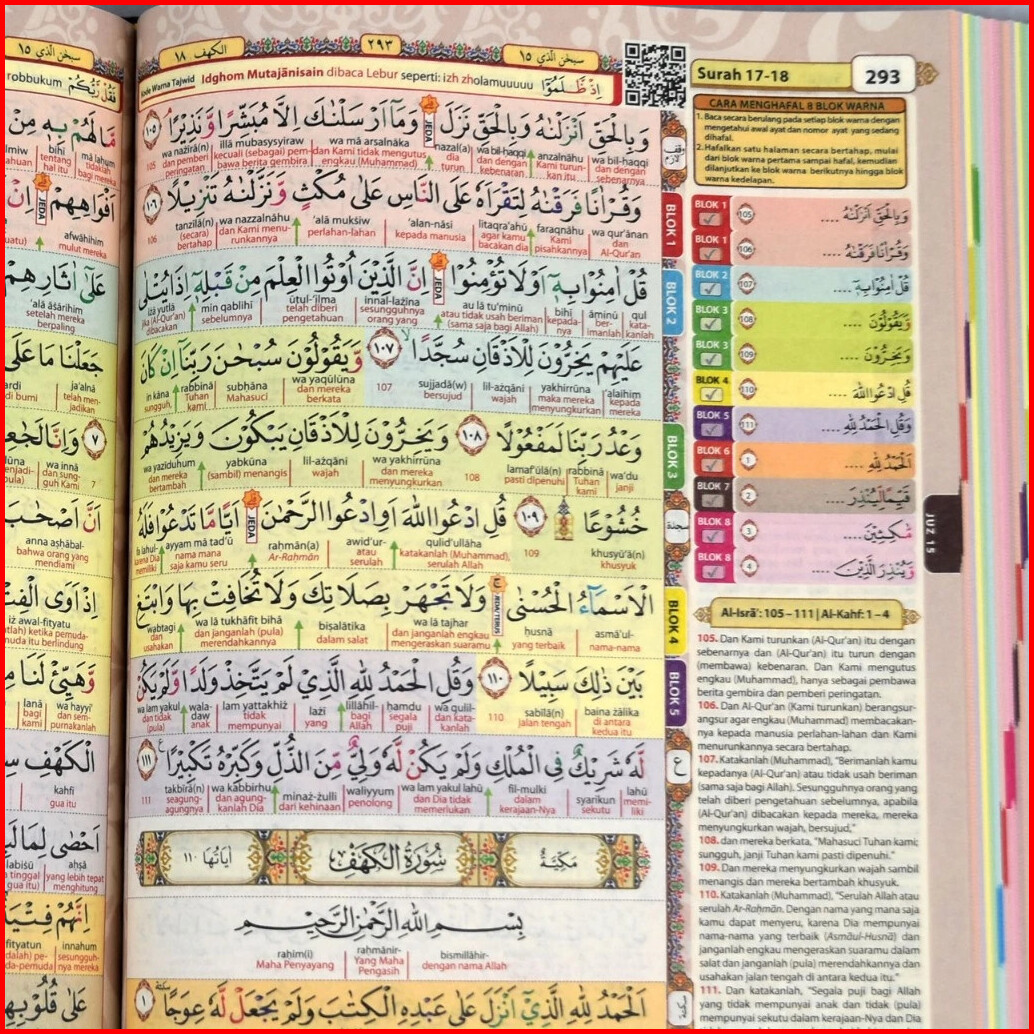 سبحن الذي ١٥
٢٩٣
الكهف ١٨
Kode Warna Tajwid
Idghom Mutajānisain dibaca Lebur seperti: izh zholamuuuuu
اِذْ ظَّلَمُوْٓا
وَبِالْحَقِّ اَنْزَلْنٰهُ وَبِالْحَقِّ نَزَلَۗ وَمَآ اَرْسَلْنٰكَ اِلَّا مُبَشِّرًا وَّنَذِيْرًاۘ ١٠٥
wa bil-haqqi anzalnāhu wa bil-haqqi nazal(a) wa mā arsalnāka illā mubasysyiraw wa nażīrā(n)
dan dengan sebenarnya Kami turunkan itu dan dengan kebenaran dia turun dan Kami tidak mengutus engkau (Muhammad) kecuali (sebagai) pembawa berita gembira dan pemberi peringatan 105
وَقُرْاٰنًا فَرَقْنٰهُ لِتَقْرَاَهٗ عَلَى النَّاسِ عَلٰى مُكْثٍ وَّنَزَّلْنٰهُ تَنْزِيْلًا ١٠٦
wa qur'ānan faraqnāhu litaqra'ahū 'alan-nāsi 'alā mukṡiw wa nazzalnāhu tanzīlā(n)
dan Al-Qur'an Kami pisahkannya agar kamu bacakan dia kepada manusia perlahan-lahan dan Kami menurunkannya (secara) bertahap 106
قُلْ اٰمِنُوْا بِهٖٓ اَوْ لَا تُؤْمِنُوْاۗ اِنَّ الَّذِيْنَ اُوْتُوا الْعِلْمَ مِنْ قَبْلِهٖٓ اِذَا يُتْلٰى
qul āminū bihī au lā tu'minū innal-lażīna ūtul-'ilma min qablihī iżā yutlā
katakanlah berimanlah kepadanya atau tidak usah beriman (sama saja bagi Allah) sesungguhnya orang yang telah diberi pengetahuan sebelumnya jika (Al-Qur'an) dibacakan
عَلَيْهِمْ يَخِرُّوْنَ لِلْاَذْقَانِ سُجَّدًا ١٠٧ وَّيَقُوْلُوْنَ سُبْحٰنَ رَبِّنَآ اِنْ كَانَ
'alaihim yakhirrūna lil-ażqāni sujjadā(w) wa yaqūlūna subḥāna rabbinā in kāna
kepada mereka maka mereka menyungkurkan wajah bersujud 107 dan mereka berkata Mahasuci Tuhan kami sungguh,
وَعْدُ رَبِّنَا لَمَفْعُوْلًا ١٠٨ وَيَخِرُّوْنَ لِلْاَذْقَانِ يَبْكُوْنَ وَيَزِيْدُهُمْ
wa'du rabbinā lamaf'ūlā(n) wa yakhirrūna lil-ażqāni yabkūna wa yazīduhum
janji Tuhan kami pasti dipenuhi 108 dan mereka menyungkurkan wajah (sambil) menangis dan mereka bertambah
خُشُوْعًا ١٠٩ قُلِ ادْعُوا اللّٰهَ اَوِ ادْعُوا الرَّحْمٰنَۗ اَيًّا مَّا تَدْعُوْا فَلَهُ
khusyū'ā(n) qulid'ullāha awid'ur- raḥmān(a) ayyam mā tad'ū falahul-
khusyuk 109 katakanlah (Muhammad), serulah Allah atau serulah Ar-Raḥmān nama mana saja kamu seru karena Dia memiliki
الْاَسْمَاۤءُ الْحُسْنٰىۚ وَلَا تَجْهَرْ بِصَلَاتِكَ وَلَا تُخَافِتْ بِهَا وَابْتَغِ
asmā'ul- ḥusnā wa lā tajhar biṣalātika wa lā tukhāfit bihā wabtagi
nama-nama yang terbaik dan janganlah engkau mengeraskan suaramu dalam salat dan janganlah (pula) merendahkannya dan usahakan
بَيْنَ ذٰلِكَ سَبِيْلًا ١١٠ وَقُلِ الْحَمْدُ لِلّٰهِ الَّذِيْ لَمْ يَتَّخِذْ وَلَدًا وَّلَمْ يَكُنْ
baina żālika sabīlā(n) wa qulil- ḥamdu lillāhil- lażī lam yattakhiż wala- daw wa lam yakul
di antara kedua itu jalan tengah 110 dan katakanlah segala puji bagi Allah yang tidak mempunyai anak dan tidak (pula)
لَّهٗ شَرِيْكٌ فِى الْمُلْكِ وَلَمْ يَكُنْ لَّهٗ وَلِيٌّ مِّنَ الذُّلِّ وَكَبِّرْهُ تَكْبِيْرًا ١١١
lahū syarīkun fil-mulki wa lam yakul lahū waliyyum minaż-żulli wa kabbirhu takbīrā(n)
memiliki sekutu dalam kerajaan-Nya dan Dia tidak memerlukan penolong dari kehinaan dan agungkanlah Dia seagung-agungnya 111
مَكِّيَّةٌ
سُوْرَةُ الْكَهْفِ
اٰيَاتُهَا ١١٠
بِسْمِ اللّٰهِ الرَّحْمٰنِ الرَّحِيْمِ
bismillāhir- raḥmānir- raḥīm(i)
dengan nama Allah Yang Maha Pengasih Maha Penyayang
اَلْحَمْدُ لِلّٰهِ الَّذِيْٓ اَنْزَلَ عَلٰى عَبْدِهِ الْكِتٰبَ وَلَمْ يَجْعَلْ لَّهٗ عِوَجًا ١
BLOK 1
BLOK 2
BLOK 3
BLOK 4
BLOK 5
Surah 17-18
293
CARA MENGHAFAL 8 BLOK WARNA
1. Baca secara berulang pada setiap blok warna dengan
mengetahui awal ayat dan nomor ayat yang sedang
dihafal.
2. Hafalkan satu halaman secara bertahap, mulai
dari blok warna pertama sampai hafal, kemudian
dilanjutkan ke blok warna berikutnya hingga blok
warna kedelapan.
BLOK 1 105 وَبِالْحَقِّ اَنْزَلْنٰهُ ....
BLOK 1 106 وَقُرْاٰنًا فَرَقْنٰهُ ....
BLOK 2 107 قُلْ اٰمِنُوْا بِهٖٓ ....
BLOK 3 108 وَيَقُوْلُوْنَ ....
BLOK 3 109 وَيَخِرُّوْنَ ....
BLOK 4 110 قُلِ ادْعُوا اللّٰهَ ....
BLOK 5 111 وَقُلِ الْحَمْدُ لِلّٰهِ ....
BLOK 6 1 اَلْحَمْدُ لِلّٰهِ ....
BLOK 7 2 قَيِّمًا لِّيُنْذِرَ ....
BLOK 8 3 مَّاكِثِيْنَ ....
BLOK 8 4 وَّيُنْذِرَ الَّذِيْنَ ....
JUZ 15
Al-Isrā': 105 – 111 | Al-Kahf: 1 – 4
105. Dan Kami turunkan (Al-Qur'an) itu dengan
sebenarnya dan (Al-Qur'an) itu turun dengan
(membawa) kebenaran. Dan Kami mengutus
engkau (Muhammad), hanya sebagai pembawa
berita gembira dan pemberi peringatan.
106. Dan Al-Qur'an (Kami turunkan) berangsur-
angsur agar engkau (Muhammad) membacakan-
nya kepada manusia perlahan-lahan dan Kami
menurunkannya secara bertahap.
107. Katakanlah (Muhammad), "Berimanlah kamu
kepadanya (Al-Qur'an) atau tidak usah beriman
(sama saja bagi Allah). Sesungguhnya orang yang
telah diberi pengetahuan sebelumnya, apabila
(Al-Qur'an) dibacakan kepada mereka, mereka
menyungkurkan wajah, bersujud,"
108. dan mereka berkata, "Mahasuci Tuhan kami;
sungguh, janji Tuhan kami pasti dipenuhi."
109. Dan mereka menyungkurkan wajah sambil
menangis dan mereka bertambah khusyuk.
110. Katakanlah (Muhammad), "Serulah Allah atau
serulah Ar-Raḥmān. Dengan nama yang mana saja
kamu dapat menyeru, karena Dia mempunyai
nama-nama yang terbaik (Asmāul-Husnā) dan
janganlah engkau mengeraskan suaramu dalam
salat dan janganlah (pula) merendahkannya dan
usahakan jalan tengah di antara kedua itu."
111. Dan katakanlah, "Segala puji bagi Allah
yang tidak mempunyai anak dan tidak (pula)
mempunyai sekutu dalam kerajaan-Nya dan Dia